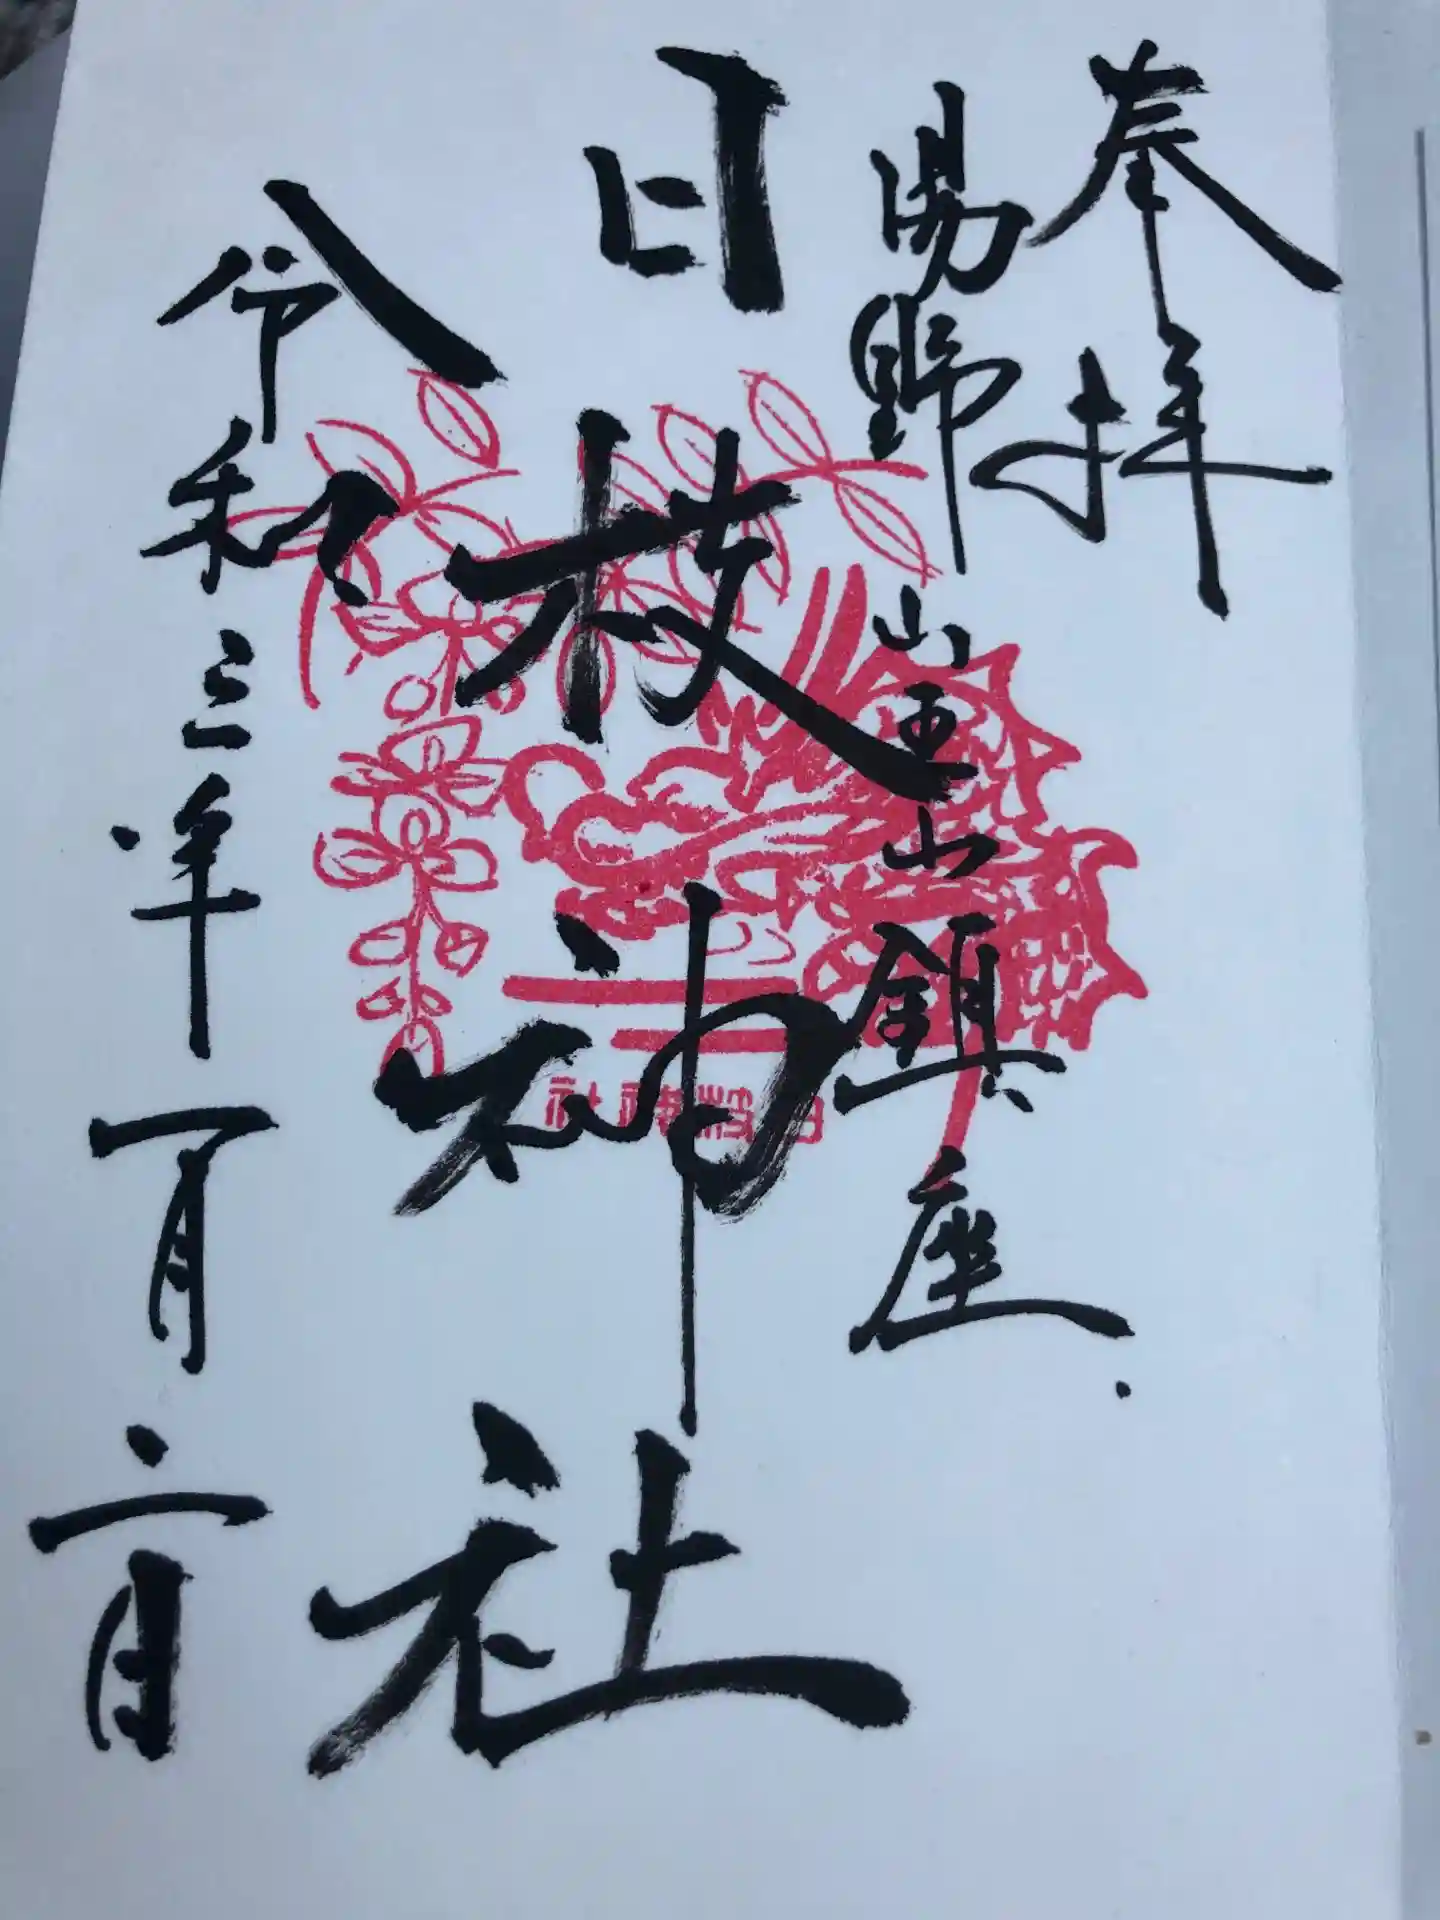 奉拝
湯野山王山鎮座
日枝神社
令和三年一月二日
日枝神社